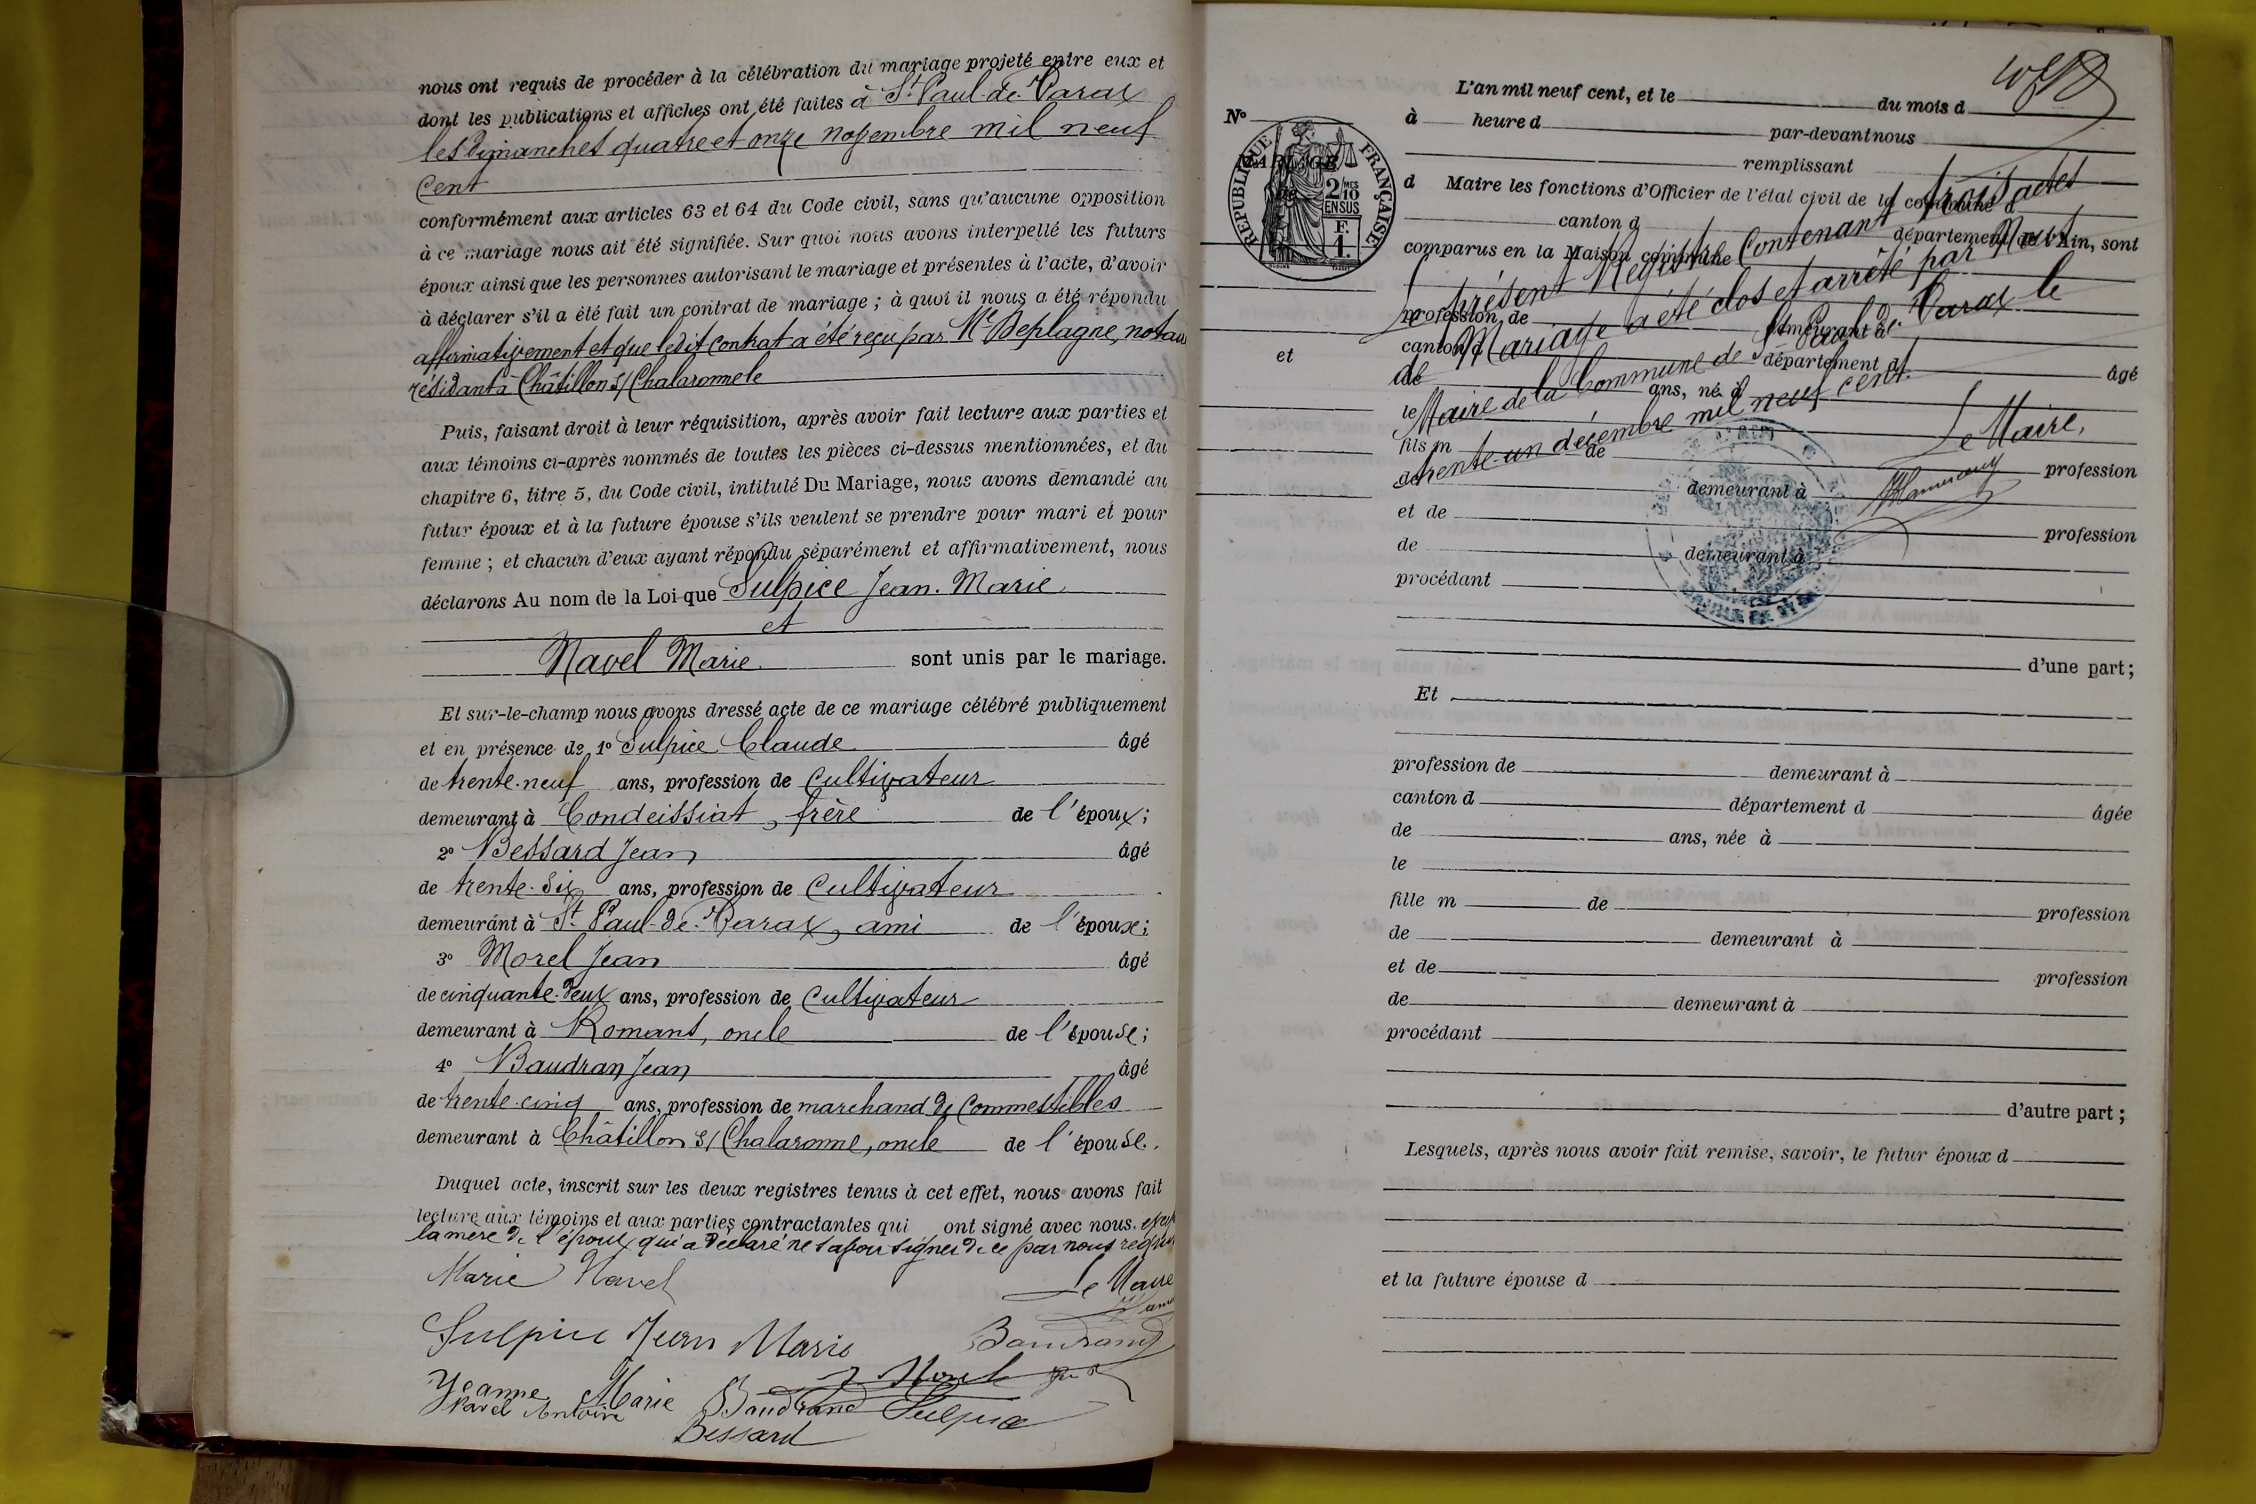 nous ont requis de procéder à la célébration du mariage projeté entre eux et
dont les publications et affiches ont été faites à St Paul-de-Varax
les Dimanches quatre et onze novembre mil neuf
Cent
conformément aux articles 63 et 64 du Code civil, sans qu'aucune opposition
à ce mariage nous ait été signifiée. Sur quoi nous avons interpellé les futurs
époux ainsi que les personnes autorisant le mariage et présentes à l'acte, d'avoir
à déclarer s'il a été fait un contrat de mariage ; à quoi il nous a été répondu
affirmativement et que ledit contrat a été reçu par Me Deplagne, notai
résidant à Châtillon s/ Chalaronne le
Puis, faisant droit à leur réquisition, après avoir fait lecture aux parties et
aux témoins ci-après nommés de toutes les pièces ci-dessus mentionnées, et du
chapitre 6, titre 5, du Code civil, intitulé Du Mariage, nous avons demandé au
futur époux et à la future épouse s'ils veulent se prendre pour mari et pour
femme ; et chacun d'eux ayant répondu séparément et affirmativement, nous
déclarons Au nom de la Loi que Sulpice Jean. Marie
et
Navel Marie sont unis par le mariage.
Et sur-le-champ nous avons dressé acte de ce mariage célébré publiquement
et en présence de 1° Sulpice Claude âgé
de trente-neuf ans, profession de Cultivateur
demeurant à Condeissiat, frère de l'époux;
2° Bessard Jean âgé
de trente-six ans, profession de Cultivateur
demeurant à St Paul-de-Varax, ami de l'époux;
3° Morel Jean âgé
de cinquante-deux ans, profession de Cultivateur
demeurant à Romans, oncle de l'épouse;
4° Baudran Jean âgé
de trente-cinq ans, profession de marchand de Commestibles
demeurant à Châtillon s/ Chalaronne, oncle de l'épouse.
Duquel acte, inscrit sur les deux registres tenus à cet effet, nous avons fait
lecture aux témoins et aux parties contractantes qui ont signé avec nous.
la mère de l'époux qui a déclaré ne savoir signer de ce par nous requi
Marie Navel
Le Maire
Sulpice Jean Marie
Baudrand
J Morel
Jeanne Marie Baudrand Sulpice
Navel Antoine
Bessard
L'an mil neuf cent, et le du mois d
N° à heure d par-devant nous
MARIAGE
de
RÉPUBLIQUE FRANÇAISE
2/10 MES
EN SUS
F.
1.
remplissant
d Maire les fonctions d'Officier de l'état civil de la commune d
canton d département de l'Ain, sont
comparus en la Maison commune
Le présent Registre Contenant trois actes
de Mariage a été clos et arrêté par Nous
Maire de la Commune de St Paul de Varax le
trente-un décembre mil neuf cent.
Le Maire,
profession de demeurant à
canton d département d
et
de ans, né à âgé
le
fils m de profession
de demeurant à
et de profession
de demeurant à
procédant
d'une part;
Et
profession de demeurant à
canton d département d âgée
de ans, née à
le
fille m de profession
de demeurant à
et de profession
de demeurant à
procédant
d'autre part;
Lesquels, après nous avoir fait remise, savoir, le futur époux d
et la future épouse d